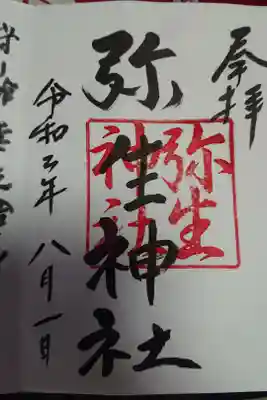 奉拝
弥生神社
弥生
神社
令和二年 八月一日